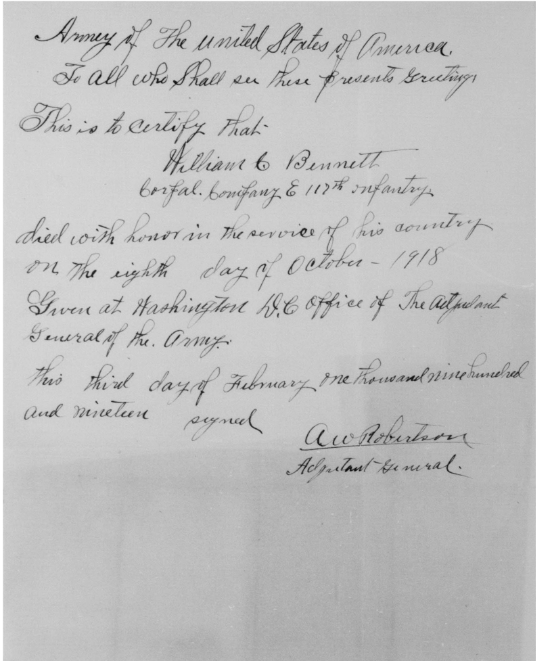 Army of The United States of America.
To all who Shall see these presents Greeting,
This is to certify that
William C Bennett
Corpal. Company E 117th infantry
died with honor in the service of his country
on the eighth day of October - 1918
Given at Washington D.C Office of The Adjutant
General of the. Army.
this third day of February one thousand nine hundred
and nineteen signed
A W Robertson
Adjutant General.